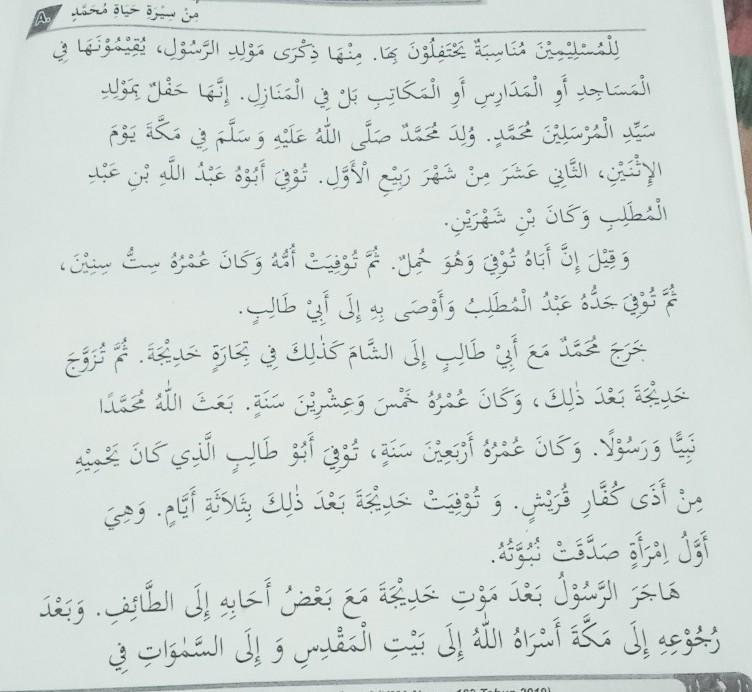 A. مِنْ سِيْرَةِ حَيَاةِ مُحَمَّدٍ
لِلْمُسْلِيْمِيْنَ مُنَاسِبَةٌ يَحْتَفِلُوْنَ بِهَا. مِنْهَا ذِكْرَى مَوْلِدِ الرَّسُوْلِ، يُقِيْمُوْنَهَا فِي
الْمَسَاجِدِ أَوِ الْمَدَارِسِ أَوِ الْمَكَاتِبِ بَلْ فِي الْمَنَازِلِ. إِنَّهَا حَفْلٌ بِمَوْلِدِ
سَيِّدِ الْمُرْسَلِيْنَ مُحَمَّدٍ. وُلِدَ مُحَمَّدٌ صَلَّى اللهُ عَلَيْهِ وَ سَلَّمَ فِي مَكَّةَ يَوْمَ
الإِثْنَيْنِ، الثَّانِي عَشَرَ مِنْ شَهْرَ رَبِيْعِ الْأَوَّلِ. تُوْفِيَ أَبُوْهُ عَبْدُ اللَّهِ بْنِ عَبْدِ
الْمُطَلِبِ وَكَانَ بْنِ شَهْرَيْنِ.
وَ قِيْلَ إِنَّ أَبَاهُ تُوْفِيَ وَهُوَ حُمِلٌ. ثُمَّ تُوْفِيَتْ أُمُّهُ وَكَانَ عُمْرُهُ سِتُّ سِنِيْنَ،
ثُمَّ تُوْفِيَ جَدُّهُ عَبْدُ الْمُطَلِبُ وَأَوْصَى بِهِ إِلَى أَبِيْ طَالِبٍ.
خَرَجَ مُحَمَّدٌ مَعَ أَبِيْ طَالِبٍ إِلَى الشَّامَ كَذٰلِكَ فِي تِجَارَةٍ خَدِيْجَةَ. ثُمَّ تُزَوَّجَ
خَدِيْجَةَ بَعْدَ ذٰلِكَ، وَكَانَ عُمْرُهُ خَمْسَ وَعِشْرِيْنَ سَنَةٍ. بَعَثَ اللهُ مُحَمَّدًا
نَبِيًّا وَرَسُوْلًا. وَكَانَ عُمْرُهُ أَرْبَعِيْنَ سَنَةٍ، تُوْفِيَ أَبُوْ طَالِبٍ الَّذِي كَانَ يَحْمِيْهِ
مِنْ أَذَى كُفَّارِ قُرَيْشٍ. وَ تُوْفِيَتْ خَدِيْجَةَ بَعْدَ ذٰلِكَ بِثَلَاثَةِ أَيَّامٍ. وَهِيَ
أَوَّلُ اِمْرَأَةٍ صَدَّقَتْ نُبُوَّتُهُ.
هَاجَرَ الرَّسُوْلُ بَعْدَ مَوْتِ خَدِيْجَةَ مَعَ بَعْضُ أَحَابِهِ إِلَى الطَّائِفِ. وَبَعْدَ
رُجُوْعِهِ إِلَى مَكَّةَ أَسْرَاهُ اللهُ إِلَى بَيْتِ الْمَقْدِسِ وَ إِلَى السَّمٰوَاتِ فِي